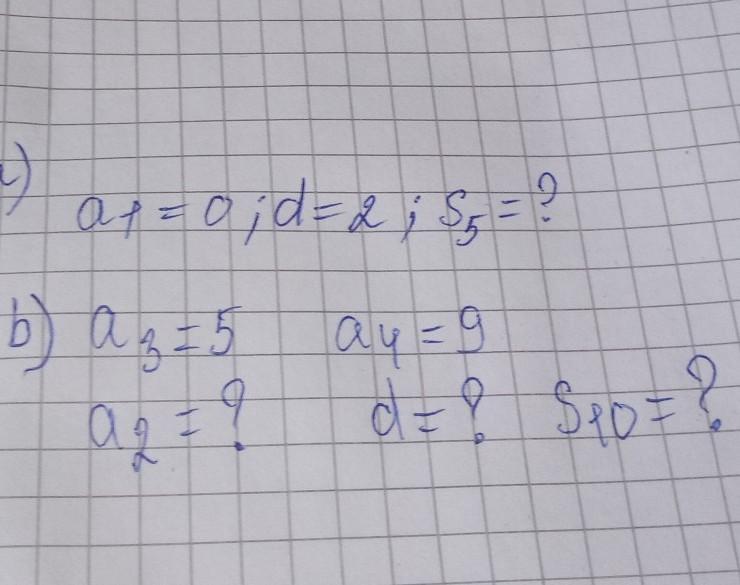 a₁ = 0 ; d = 2 ; S₅ = ?
b) a₃ = 5 a₄ = 9
a₂ = ? d = ? S₁₀ = ?